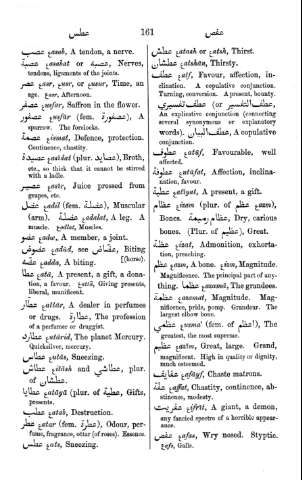 عطس 161 عفص
عصب asab, A tendon, a nerve.
عصبة asabat or عصبه, Nerves,
tendons, ligaments of the joints.
عصر asr, or usur, Time, an
age. asr, Afternoon.
عصفر usfur, Saffron in the flower.
عصفور usfūr (fem. عصفورة), A
sparrow. The forelocks.
عصمة ismat, Defence, protection.
Continence, chastity.
عصيدة asīdat (plur. عصايد), Broth,
etc., so thick that it cannot be stirred
with a ladle.
عصير asīr, Juice pressed from
grapes, etc.
عضل adil (fem. عضلة), Muscular
(arm). عضلة adalat, A leg. A
muscle. Muscles.
عضو adu, A member, a joint.
عضوض adūd, عضاض Biting
عضة adda, A biting. [(horse).
عطا atā, A present, a gift, a dona-
tion, a favour. Giving presents,
liberal, munificent.
عطار attār, A dealer in perfumes
or drugs. عطارة, The profession
of a perfumer or druggist.
عطارد utārid, The planet Mercury.
Quicksilver, mercury.
عطاس utās, Sneezing.
عطاش atāsh and عطاشي, plur.
of عطشان.
عطايا atāyā (plur. of عطية), Gifts,
presents.
عطب atab, Destruction.
عطر atar (fem. عطرة), Odour, per-
fume, fragrance, ottar (of roses). Essence.
عطس ats, Sneezing.
عطش atash or atsh, Thirst.
عطشان atshān, Thirsty.
عطف atf, Favour, affection, in-
clination. A copulative conjunction.
Turning, conversion. A present, bounty.
عطف تفسيري (or عطف التفسير)
An explicative conjunction (connecting
several synonymous or explanatory
words). عطف البيان, A copulative
conjunction.
عطوف atūf, Favourable, well
affected.
عطوفة utūfat, Affection, inclina-
nation, favour.
عطية atīyat, A present, a gift.
عظام izām (plur. of عظم azm),
Bones. عظام رميمة, Dry, carious
bones. (Plur. of عظيم), Great.
عظة izat, Admonition, exhorta-
tion, preaching.
عظم azm, A bone. izm, Magnitude.
Magnificence. The principal part of any-
thing. عظما uzamā, The grandees.
عظمة azamat, Magnitude. Mag-
nificence, pride, pomp. Grandeur. The
largest elbow bone.
عظمي uzma' (fem. of اعظم), The
greatest, the most supreme.
عظيم azīm, Great, large. Grand,
magnificent. High in quality or dignity,
much esteemed.
عفايف afāyf, Chaste matrons.
عفة iffat, Chastity, continence, ab-
stinence, modesty.
عفريت ifrīt, A giant, a demon,
any fancied spectre of a horrible appear-
ance.
عفص afas, Wry nosed. Styptic.
afs, Galls.